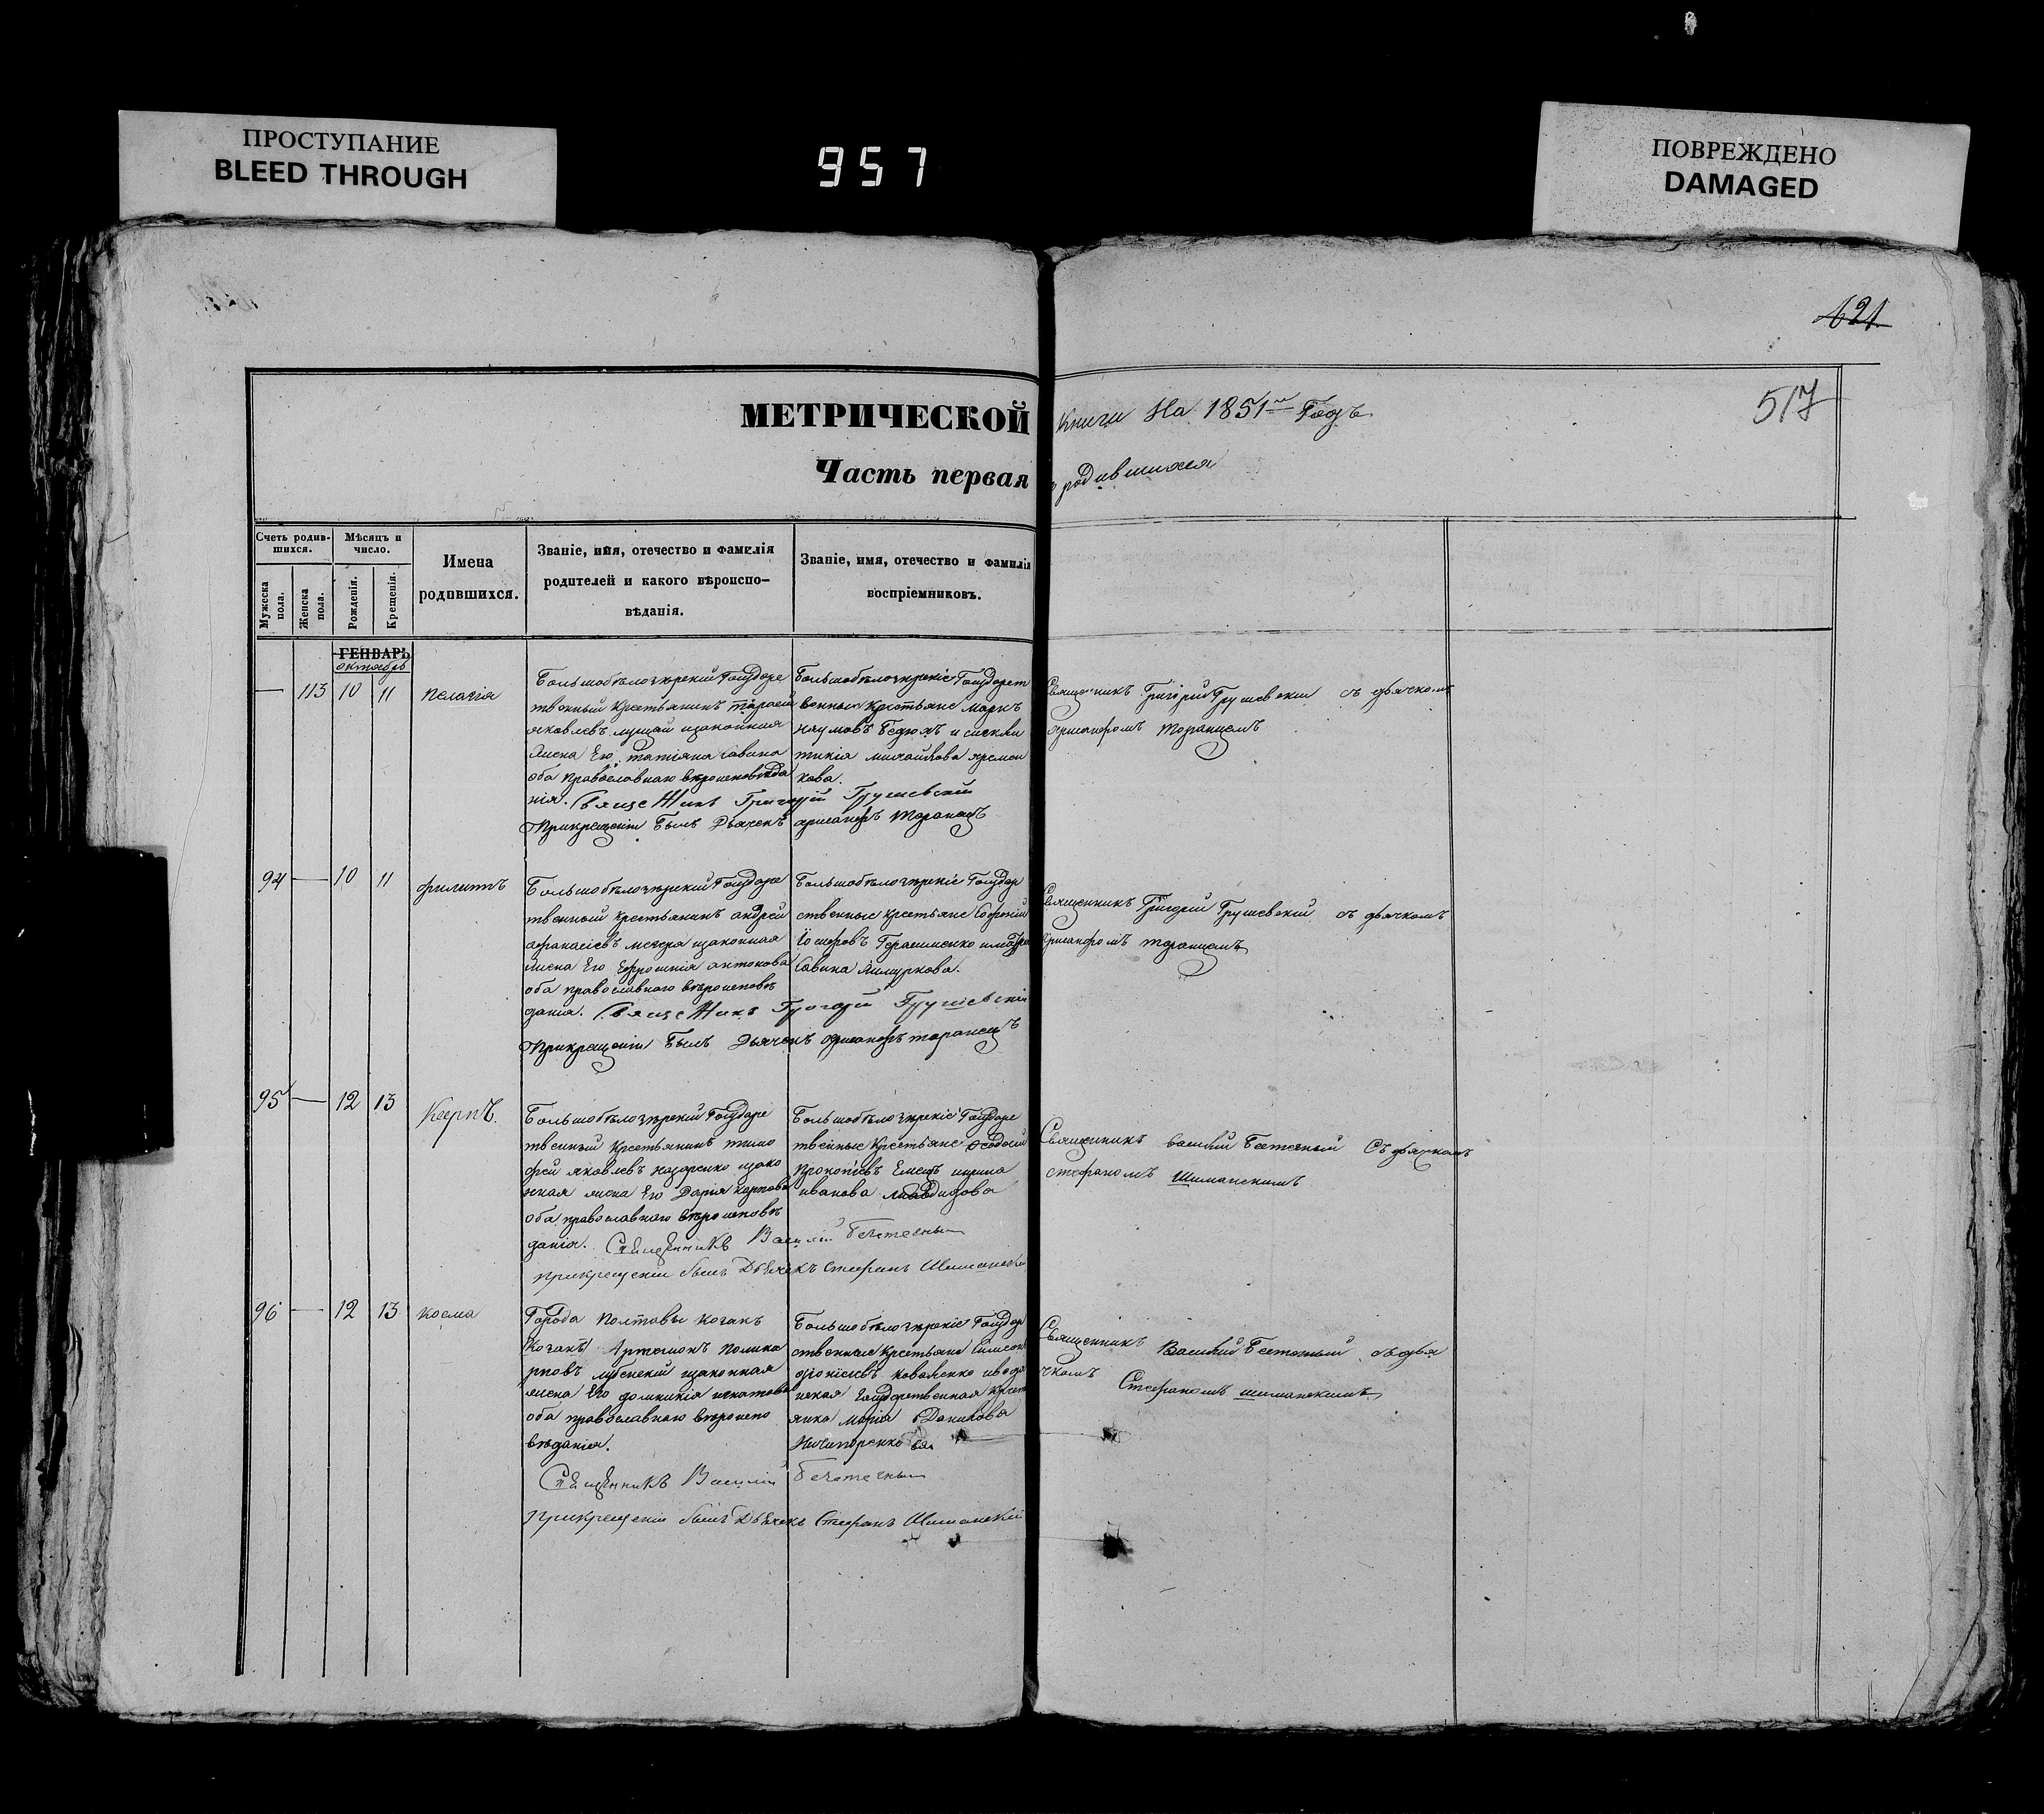 ПРОСТУПАНИЕ
BLEED THROUGH
957
ПОВРЕЖДЕНО
DAMAGED
421
517
МЕТРИЧЕСКОЙ книги На 1851й Годъ
Часть первая родившихся
Счетъ родив-
шихся.
Мужеска пола.
Женска пола.
Мѣсяцъ и
число.
Рожденія.
Крещенія.
Имена
родившихся.
Званіе, имя, отечество и фамилія
родителей и какого вѣроиспо-
вѣданія.
Званіе, имя, отечество и фамилія
воспріемниковъ.
ГЕНВАРЬ
октябрь
— 113 10 11 Пелагія
Большобѣлозѣрскій Государс
твенный крестьянинъ
яковлевъ законная
жена Его татіана Савина
оба Православнаго вѣроисповѣда
нія. Священникъ Григорій Грушевскій
Прикрещеніи Былъ Дьячекъ Таранецъ
Большобѣлозѣрскіе Государст
венные Крестьяне Маркъ
наумовъ и
михайлова
кова.
Священникъ Григорій Грушевскій съ дьячкомъ
94 — 10 11 филиппъ
Большобѣлозѣрскій Государс
твенный крестьянинъ андрей
афанасіевъ мегера законная
жена Его Ефросинія антонова
оба православнаго вѣроисповѣ
данія. Священникъ Григорій Грушевскій
Прикрещеніи Былъ Дьячекъ таранецъ
Большобѣлозѣрскіе Государ
ственные крестьяне Софроній
Іосифовъ Герасименко
Савина
Священникъ Григорій Грушевскій съ дьячкомъ
95 — 12 13 Карпъ.
Большобѣлозѣрскій Государс
твенный Крестьянинъ тимо
фей яковлевъ назаренко зако
нная жена Его Дарія карпова
оба православнаго вѣроисповѣ
данія. Священникъ Василій
прикрещеніи былъ Дьячекъ Стефанъ Шиманскій
Большобѣлозѣрскіе Государс
твенные Крестьяне Феодосій
Прокопіевъ Емецъ
иванова
Священникъ василій Съ дьячкомъ
стефаномъ Шиманскимъ
96 — 12 13 косма
Города Полтавы козакъ
Козакъ Артемонъ Полика
рповъ лубенскій законная
жена Его домникія игнатова
оба православнаго вѣроиспо
вѣданія.
Священникъ Василій
Прикрещеніи былъ Дьячекъ Стефанъ Шиманскій
Большобѣлозѣрскіе Государ
ственные крестьяне Симеонъ
коваленко
нская Государственная крест
янка Марія Данилова
Ничипоренко
Священникъ Василій съ дья
чкомъ Стефаномъ шиманскимъ